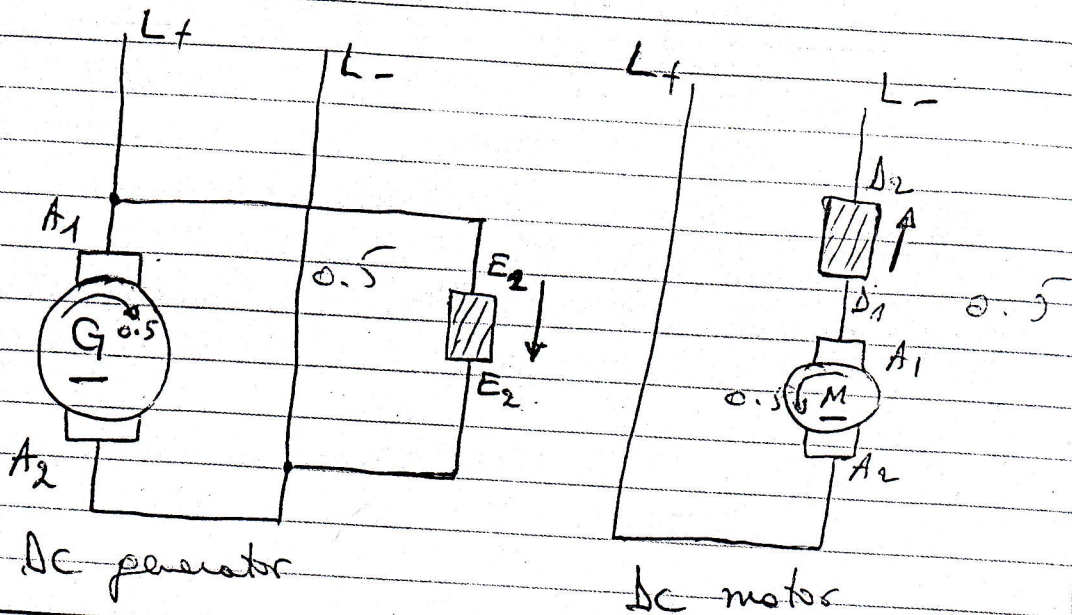 L+
L-
L+
L-
A1
G
0.5
A2
0.5
E2
E2
DC generator
D2
D1
0.5
A1
0.5
M
A2
DC motor